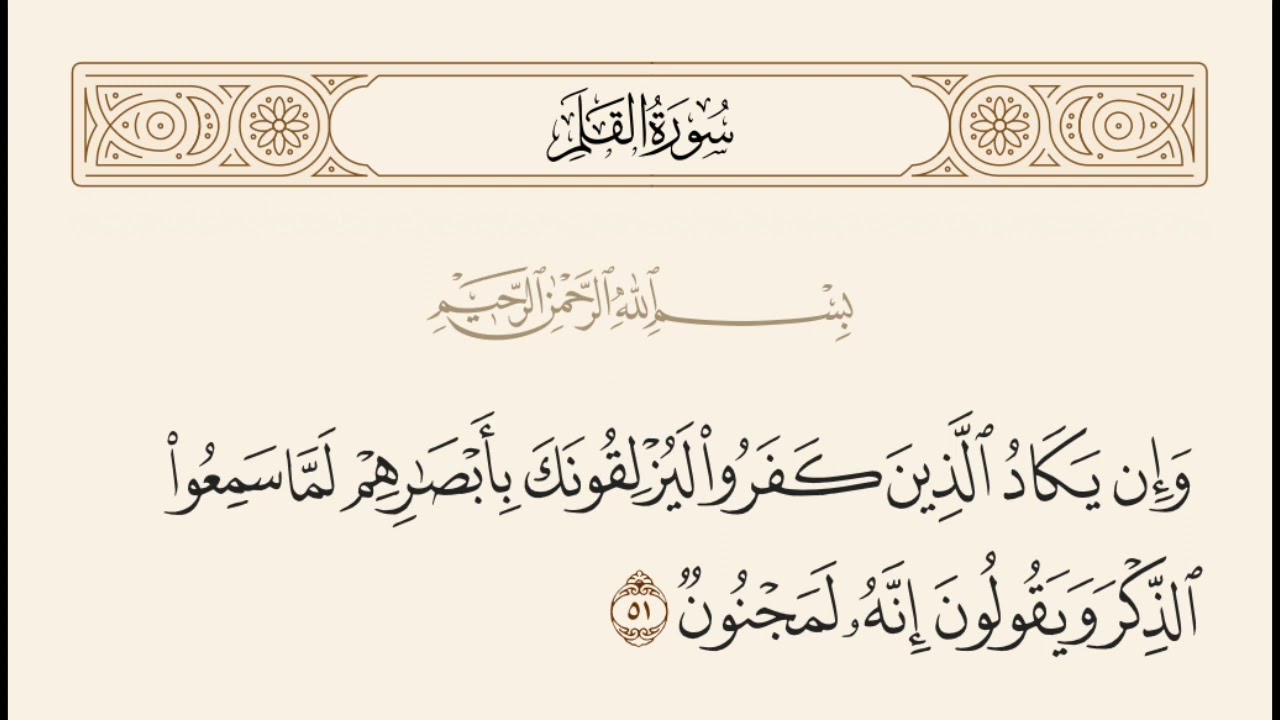 سُورَةُ القَلَمِ
بِسْمِ ٱللَّهِ ٱلرَّحْمَٰنِ ٱلرَّحِيمِ
وَإِن يَكَادُ ٱلَّذِينَ كَفَرُوا۟ لَيُزْلِقُونَكَ بِأَبْصَـٰرِهِمْ لَمَّا سَمِعُوا۟
ٱلذِّكْرَ وَيَقُولُونَ إِنَّهُۥ لَمَجْنُونٌ ٥١